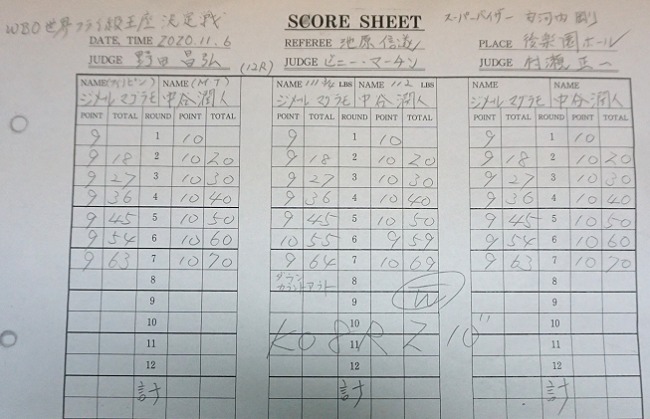 WBO世界フライ級王座 決定戦 SCORE SHEET スーパーバイザー 安河内 剛
DATE, TIME 2020.11.6 REFEREE 池原信遂 PLACE 後楽園ホール
JUDGE 野田昌弘 (12R) JUDGE ビニー・マーチン JUDGE 村瀬正一
NAME(フィリピン) NAME(M.T) NAME LBS NAME 112 LBS NAME NAME
ジメール マグラモ 中谷潤人 ジメール マグラモ 中谷潤人 ジメール マグラモ 中谷潤人
POINT TOTAL ROUND POINT TOTAL POINT TOTAL ROUND POINT TOTAL POINT TOTAL ROUND POINT TOTAL
9 1 10 9 1 10 9 1 10
9 18 2 10 20 9 18 2 10 20 9 18 2 10 20
9 27 3 10 30 9 27 3 10 30 9 27 3 10 30
9 36 4 10 40 9 36 4 10 40 9 36 4 10 40
9 45 5 10 50 9 45 5 10 50 9 45 5 10 50
9 54 6 10 60 10 55 6 9 59 9 54 6 10 60
9 63 7 10 70 9 64 7 10 69 9 63 7 10 70
8 ダウン カウントアウト 8 8
9 9 W 9
10 10 10
KO 8R 2'10"
11 11 11
12 12 12
計 計 計